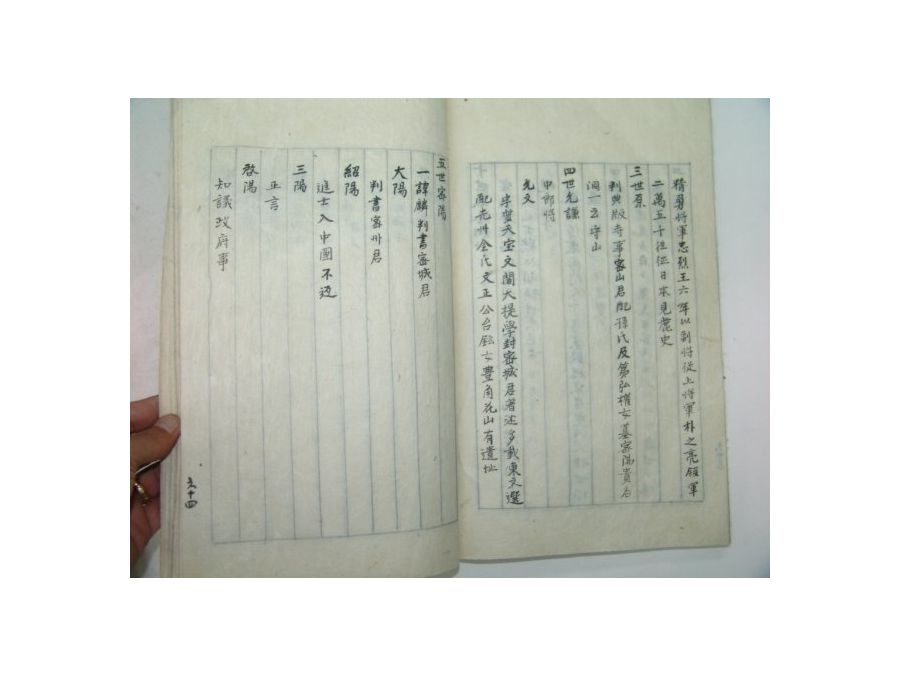 精勇將軍忠烈王六年以副將從上將軍朴之亮領軍
二萬五十往征日本見麗史
三世原
判典版寺事密山君配孫氏及第弘權女墓密陽貴
洞一云守山
四世允謙
中郎將
允文
字質夫宝文閣大提學封密城君著述多載東文選
配光州金氏文正公台鉉女豊角花山有遺址
五世密陽
一諱麟判書密城君
大陽
判書密州君
紹陽
進士入中國不返
三陽
正言
啓陽
知議政府事
六十四